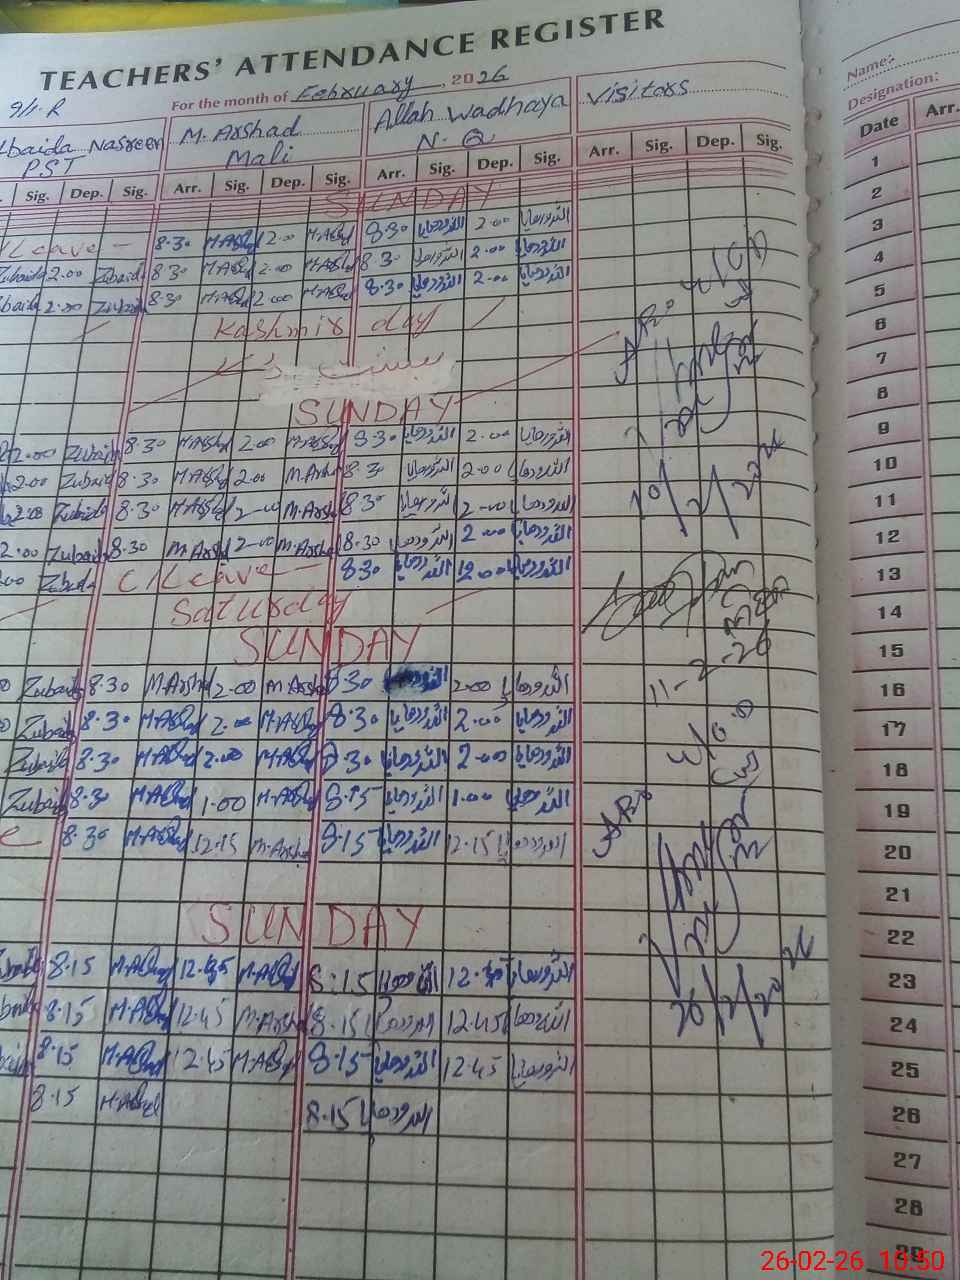 TEACHERS' ATTENDANCE REGISTER
For the month of February, 2026
Nasreen M. Arshad Allah Wadhaya Visitors
P.ST Mali N. Q
Sig. Dep. Sig. Arr. Sig. Dep. Sig. Arr. Sig. Dep. Sig. Arr. Sig. Dep. Sig.
SUNDAY
Leave 8.30 M.Arshad 2.00 M.Arshad 8.30 اللہ ودھایا 2.00 اللہ ودھایا
Zubaida 2.00 Zubaida 8.30 M.Arshad 2.00 M.Arshad 8.30 اللہ ودھایا 2.00 اللہ ودھایا
2.00 Zubaida 8.30 M.Arshad 2.00 M.Arshad 8.30 اللہ ودھایا 2.00 اللہ ودھایا
Kashmir day
SUNDAY
2.00 Zubaida 8.30 M.Arshad 2.00 M.Arshad 8.30 اللہ ودھایا 2.00 اللہ ودھایا
2.00 Zubaida 8.30 M.Arshad 2.00 M.Arshad 8.30 اللہ ودھایا 2.00 اللہ ودھایا
2.00 Zubaida 8.30 M.Arshad 2.00 M.Arshad 8.30 اللہ ودھایا 2.00 اللہ ودھایا
2.00 Zubaida 8.30 M.Arshad 2.00 M.Arshad 8.30 اللہ ودھایا 2.00 اللہ ودھایا
Zubaida C/Leave 8.30 اللہ ودھایا 12.00 اللہ ودھایا
Saturday
SUNDAY
Zubaida 8.30 M.Arshad 2.00 M.Arshad 8.30 2.00 اللہ ودھایا
Zubaida 8.30 M.Arshad 2.00 M.Arshad 8.30 اللہ ودھایا 2.00 اللہ ودھایا
Zubaida 8.30 M.Arshad 2.00 M.Arshad 8.30 اللہ ودھایا 2.00 اللہ ودھایا
Zubaida 8.30 M.Arshad 1.00 M.Arshad 8.15 اللہ ودھایا 1.00 اللہ ودھایا
8.30 M.Arshad 12.15 M.Arshad 8.15 اللہ ودھایا 12.15 اللہ ودھایا
SUNDAY
8.15 M.Arshad M.Arshad 8:15 اللہ ودھایا اللہ ودھایا
8.15 M.Arshad 12.45 M.Arshad 8.15 اللہ ودھایا 12.45 اللہ ودھایا
8.15 M.Arshad 12.45 M.Arshad 8.15 اللہ ودھایا 12.45 اللہ ودھایا
8.15 M.Arshad 8.15 اللہ ودھایا
10/2/2026
11-2-26
Name:
Designation:
Date Arr.
1
2
3
4
5
6
7
8
9
10
11
12
13
14
15
16
17
18
19
20
21
22
23
24
25
26
27
28
29
26-02-26 10:50